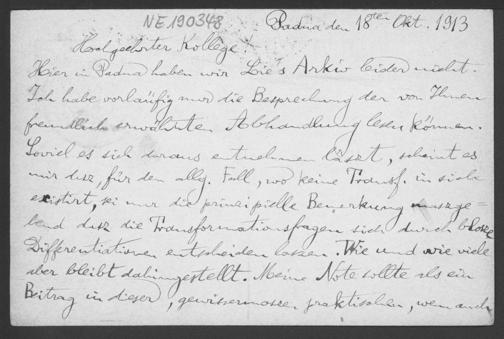 NE 190348
Padua den 18ten Okt. 1913
Hochgeehrter Kollege!
Hier in Padua haben wir Lie's Arkiv leider nicht.
Ich habe vorläufig nur die Besprechung der von Ihnen
freundlich erwähnten Abhandlung lesen können.
Soviel es sich daraus entnehmen lässt, scheint es
mir dass, für den allg. Fall, wo keine Transf. in sich
existirt, sei nur die principielle Bemerkung
dass die Transformationsfragen sich durch blosse
Differentiationen entscheiden lassen. Wie und wie viele
aber bleibt dahingestellt. Meine Note sollte als ein
Beitrag in dieser, gewissermassen praktischen, wenn auch